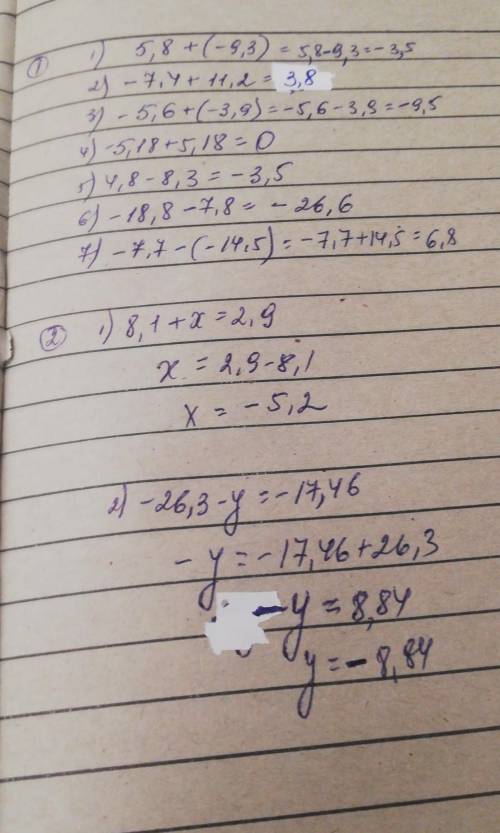 ① 1) 5,8 + (-9,3) = 5,8-9,3=-3,5
2) -7,4+11,2= 3,8
3) -5,6+(-3,9)=-5,6-3,9=-9,5
4) -5,18+5,18=0
5) 4,8-8,3=-3,5
6) -18,8-7,8= -26,6
7) -7,7-(-14,5)=-7,7+14,5=6,8
② 1) 8,1+x=2,9
x=2,9-8,1
x=-5,2
2) -26,3-y=-17,46
-y=-17,46+26,3
-y=8,84
y=-8,84